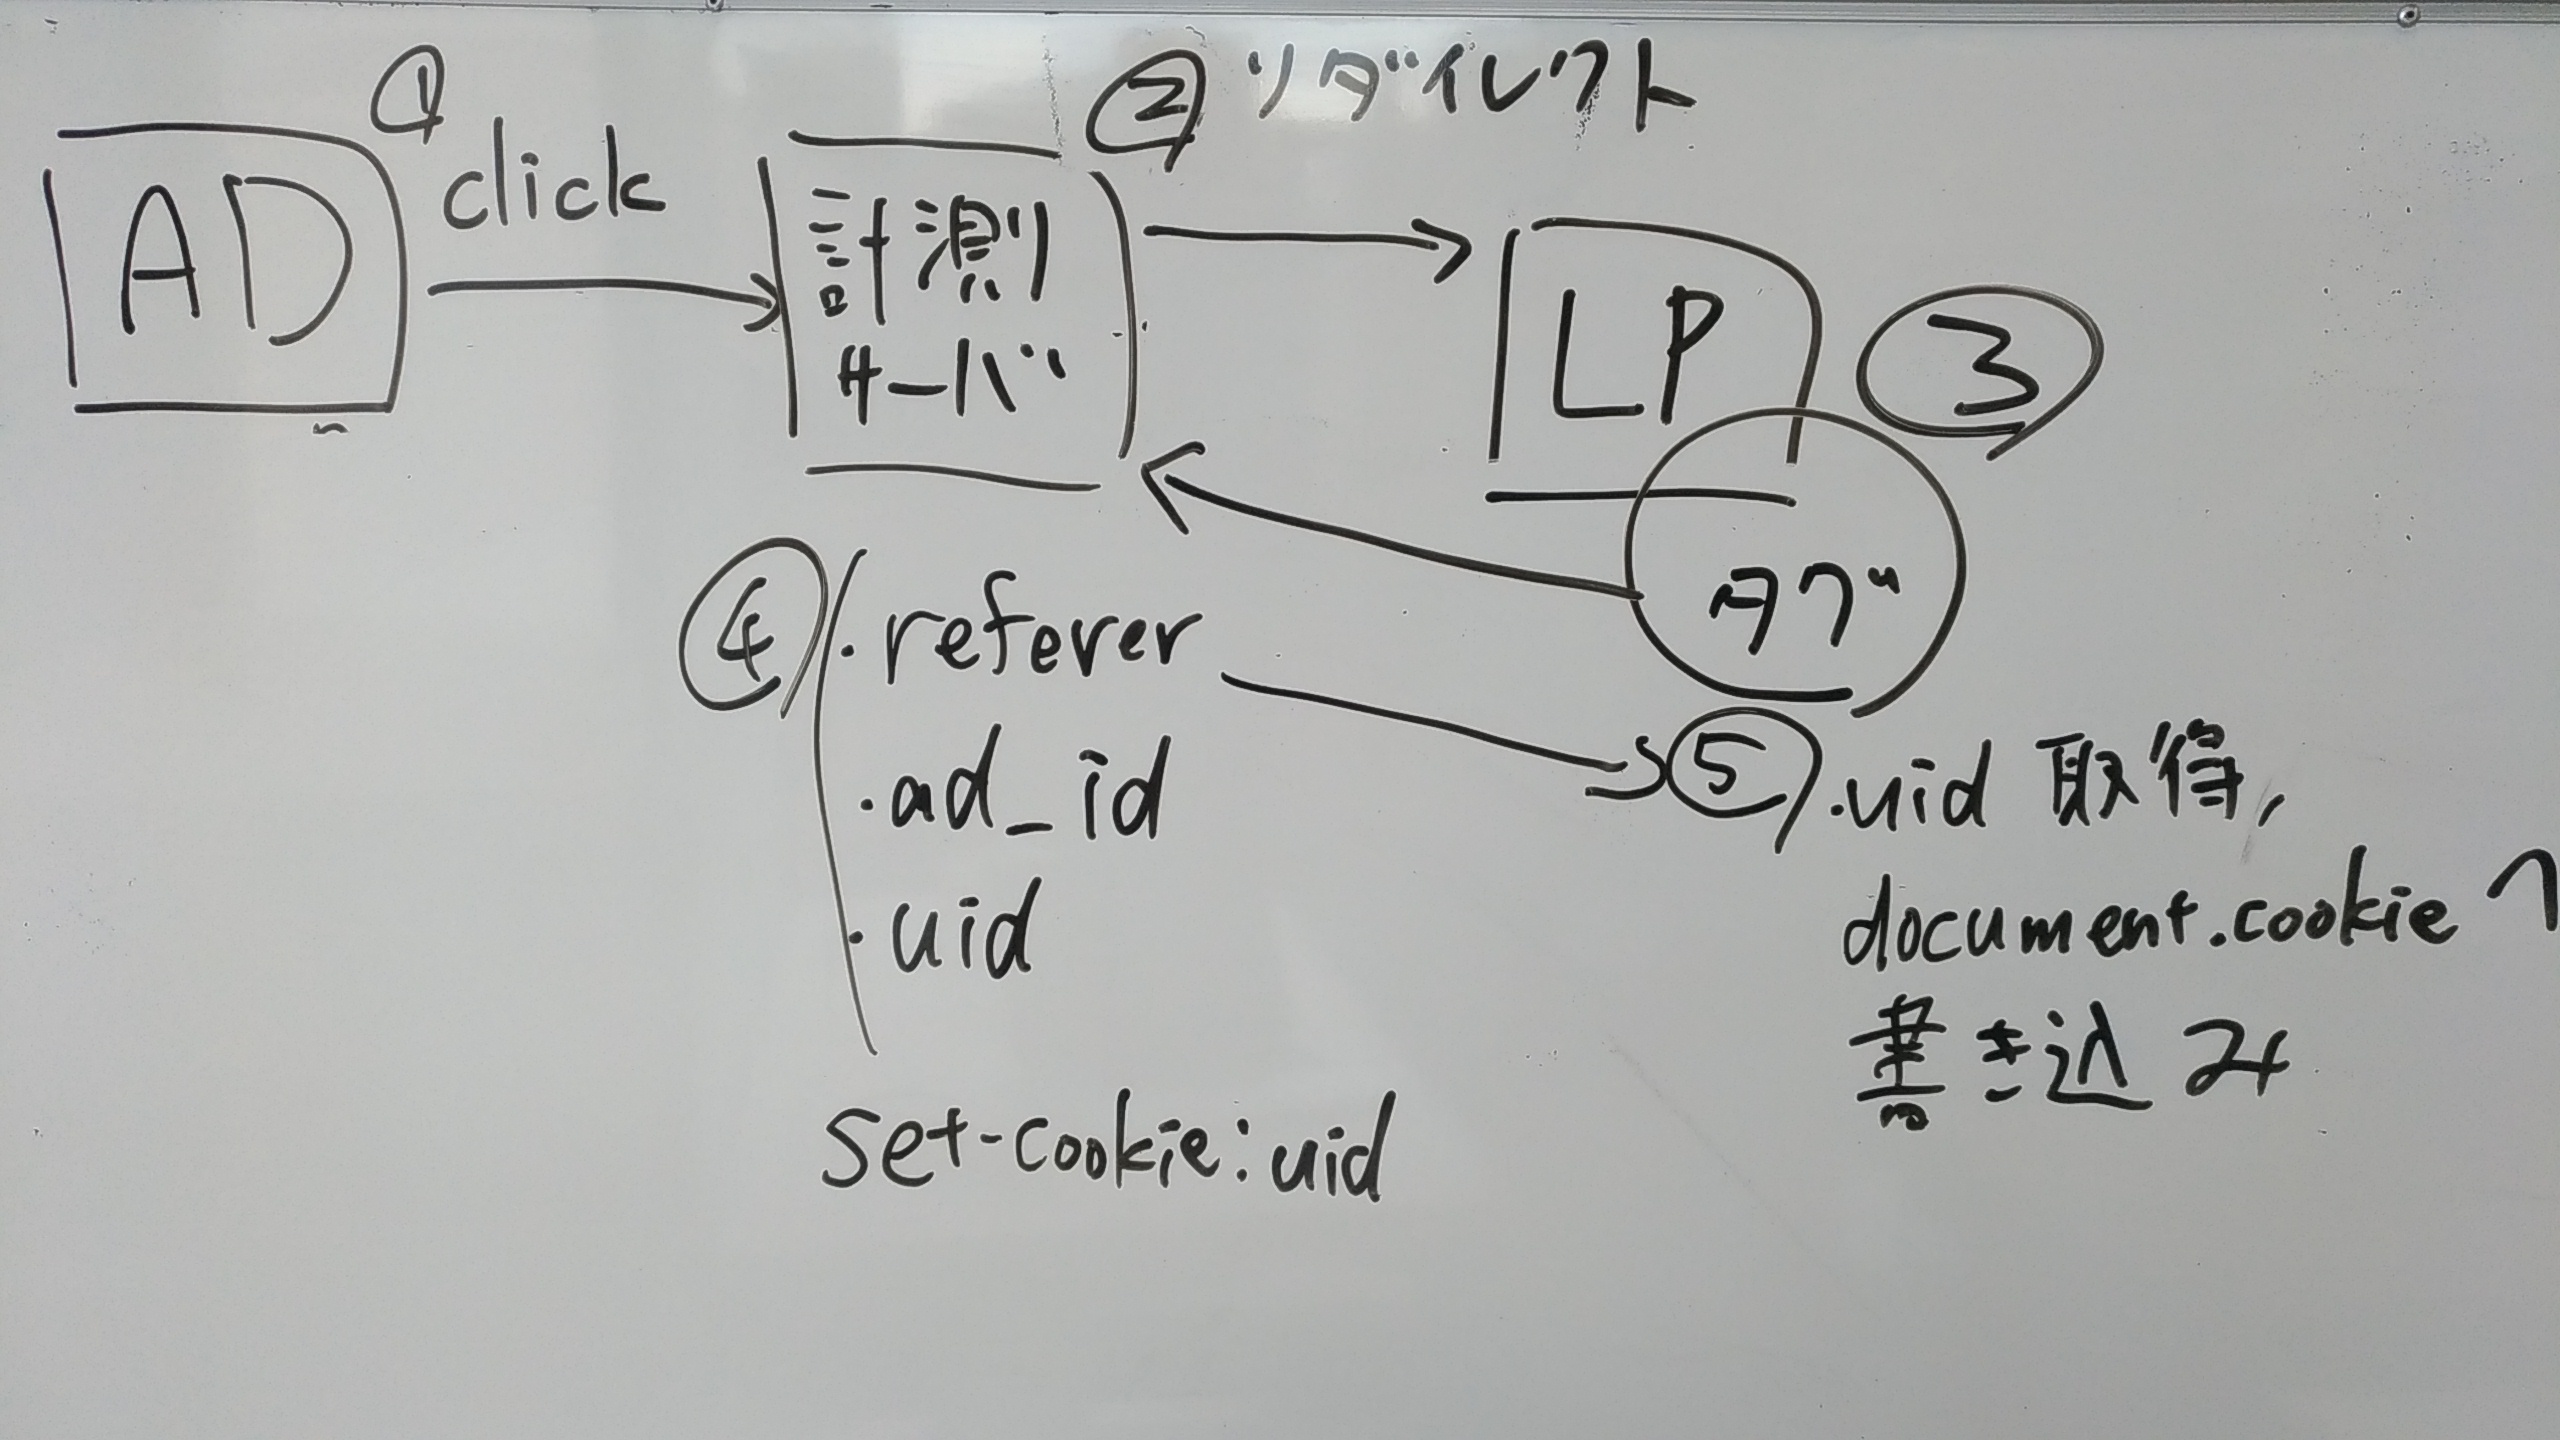 ① click
② リダイレクト
AD
計測
サーバ
LP
③
タグ
④
・referer
・ad_id
・uid
set-cookie:uid
⑤ ・uid 取得,
document.cookie へ
書き込み